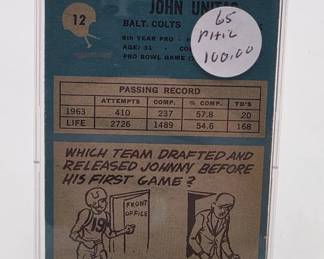 12
JOHN UNITAS
BALT. COLTS
9TH YEAR PRO
AGE: 31
PRO BOWL GAME
65
PHIL
100.00
PASSING RECORD
ATTEMPTS COMP. % COMP. TD'S
1963 410 237 57.8 20
LIFE 2726 1489 54.6 168
WHICH TEAM DRAFTED AND
RELEASED JOHNNY BEFORE
HIS FIRST GAME?
FRONT
OFFICE
19